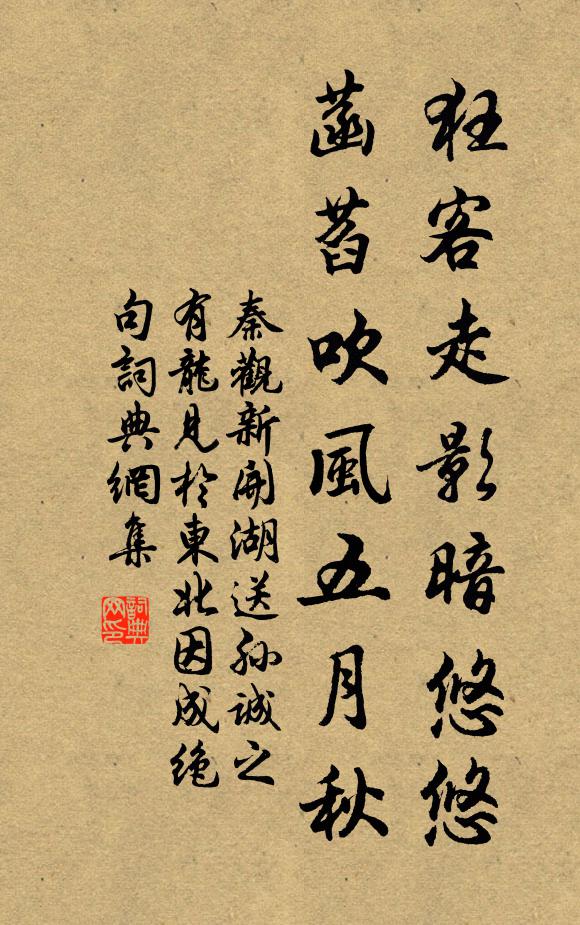 狂客走影暗悠悠
菡萏吹風五月秋
秦觀新開湖送孫誠之
有龍見於東北因成絶
句詞典網集
詞典网印